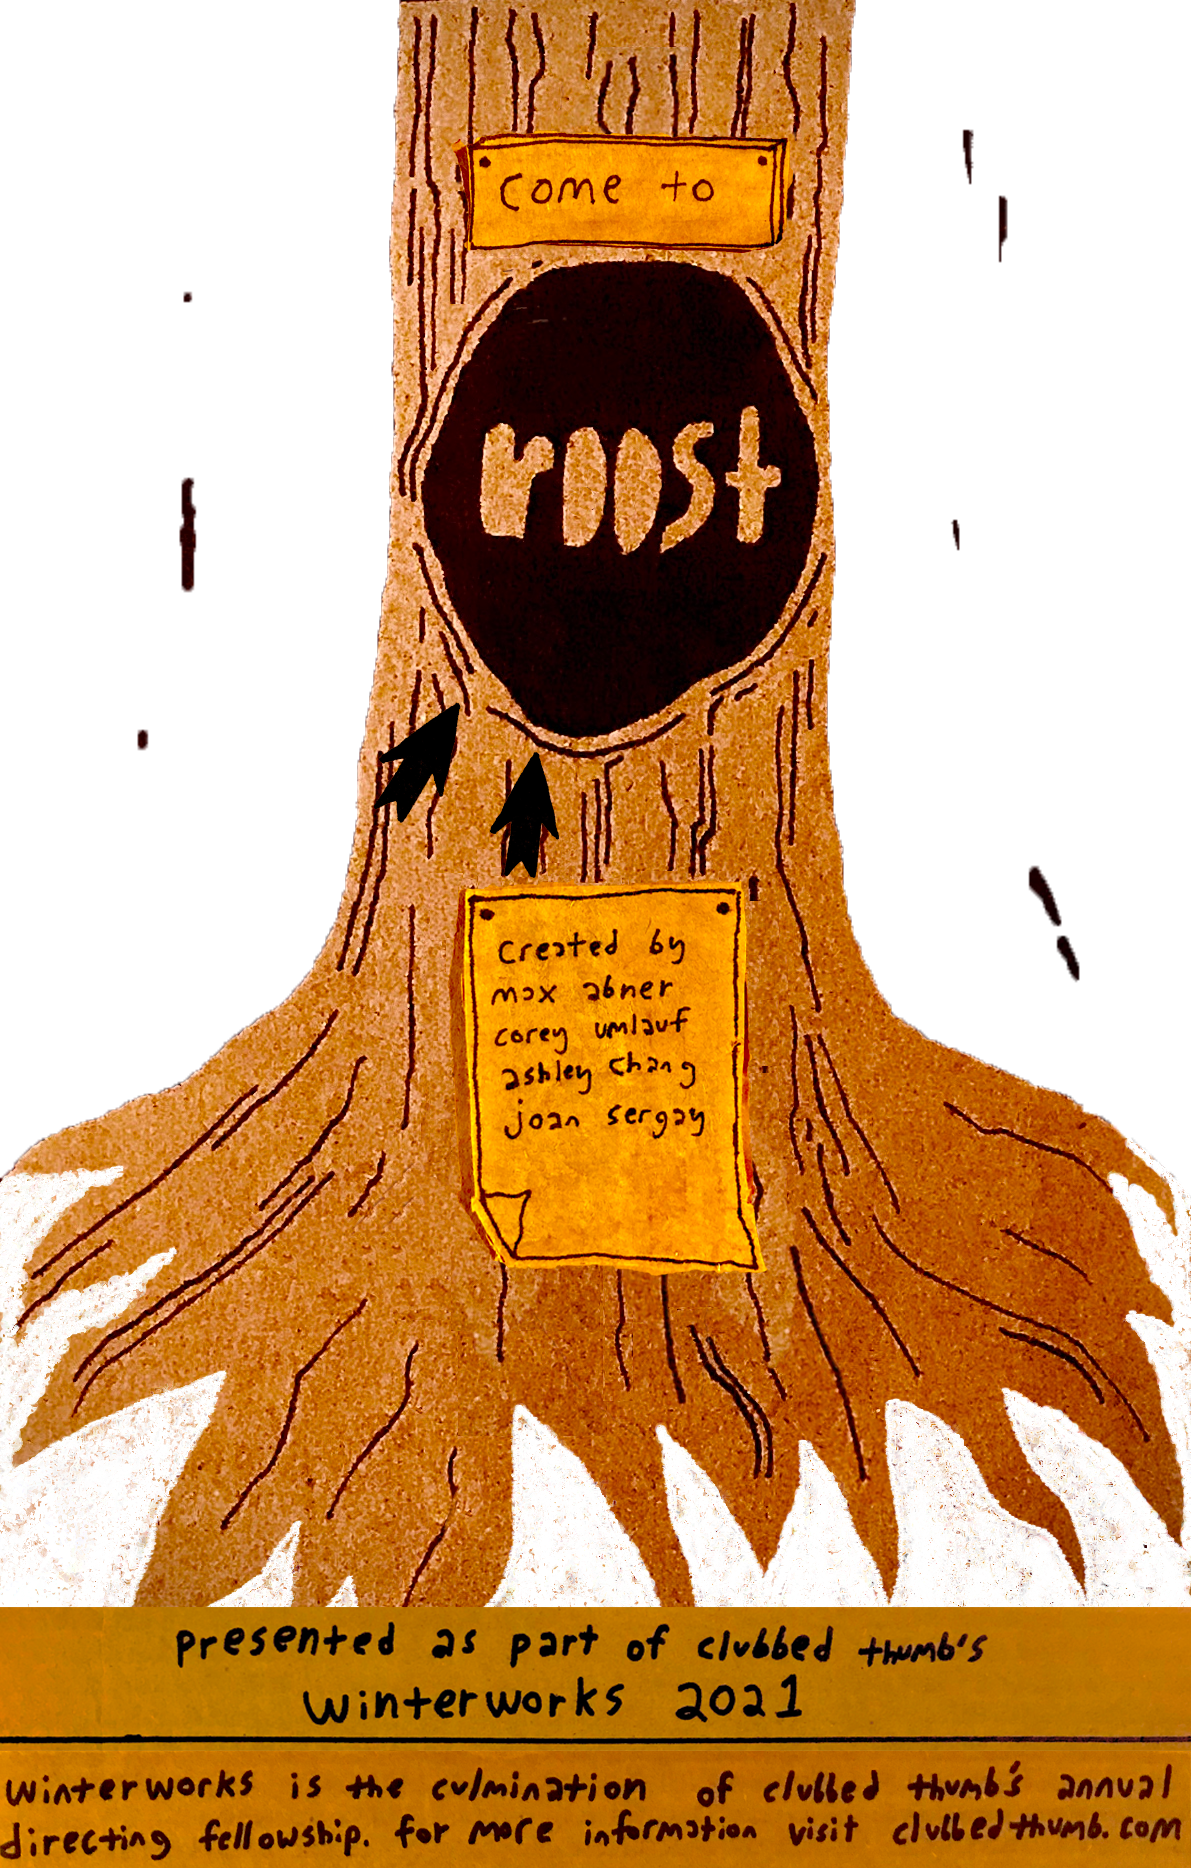 come to
roost
created by
max abner
corey umlauf
ashley chang
joan sergay
presented as part of clubbed thumb's
winterworks 2021
winterworks is the culmination of clubbed thumb's annual
directing fellowship. for more information visit clubbedthumb.com